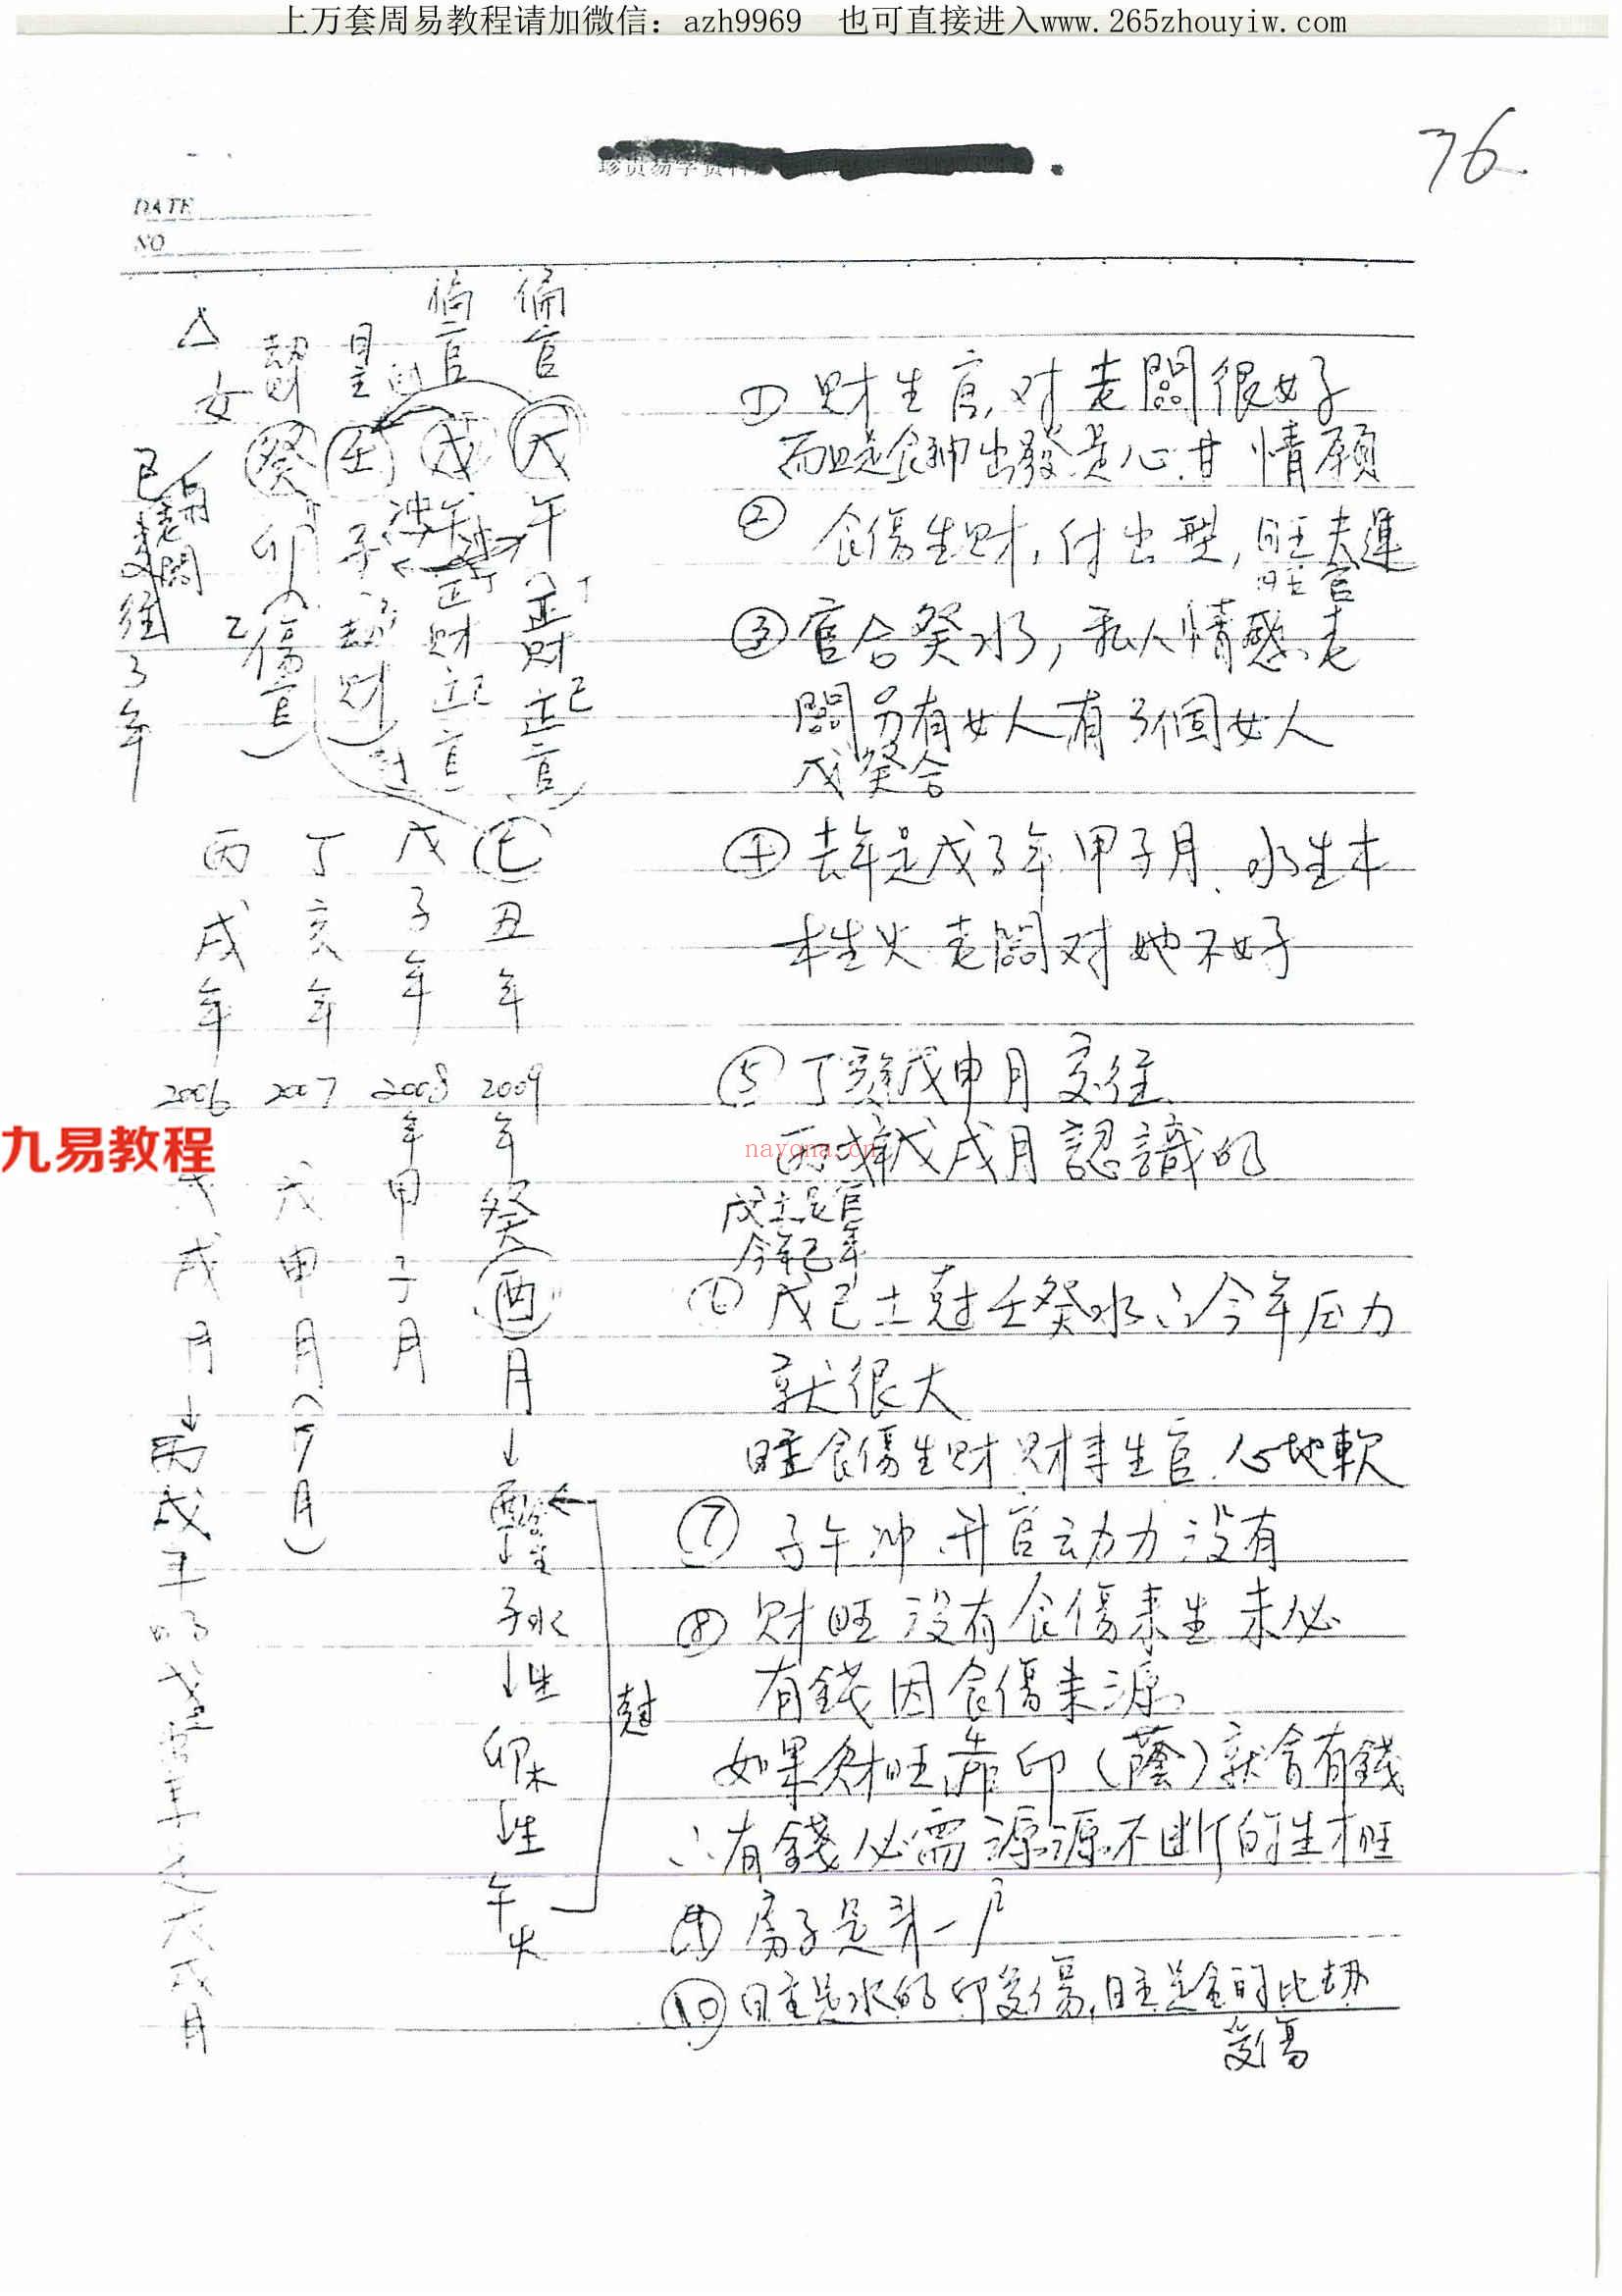 上万套周易教程请加微信：azh9969 也可直接进入www.265zhouyiw.com
76
珍贵易学资料
DATE
NO
偏官
偏官
日主
劫財
△女
戊午(丁正財己正官)
戊午 丁正財己正官
壬子(劫財)
癸卯(乙傷官)
冲
冲
已交往3年
老闆
己丑年
戊子年
丁亥年
丙戌年
2009年癸(酉)月
2008年甲子月
2007戊申月(7月)
2006戊戌月
子水
↓生
卯木
↓生
午火
剋
① 財生官,对老闆很好
而且是食神出發是心甘情願
② 食傷生財,付出型,旺夫運
旺官
③ 官合癸水,私人情感,老
闆另有女人有3個女人
戊癸合
④ 去年是戊子年甲子月.水生木
木生火 老闆对她不好
⑤ 丁亥年戊申月交往
丙戌年戊戌月認識的
戊土是官
今年己年
⑥ 戊己土剋壬癸水∴今年压力
就很大
日主食傷生財財來生官.心地軟
⑦ 子午冲 升官动力没有
⑧ 財旺没有食傷來生未必
有錢因食傷來源。
如果財旺靠印(蔭)就會有錢
∴有錢必需源源不断的生才旺
⑨ 房子是第一戶
⑩ 日主是水的印受傷,日主是金的比劫
受傷
九易教程
nayona.cn